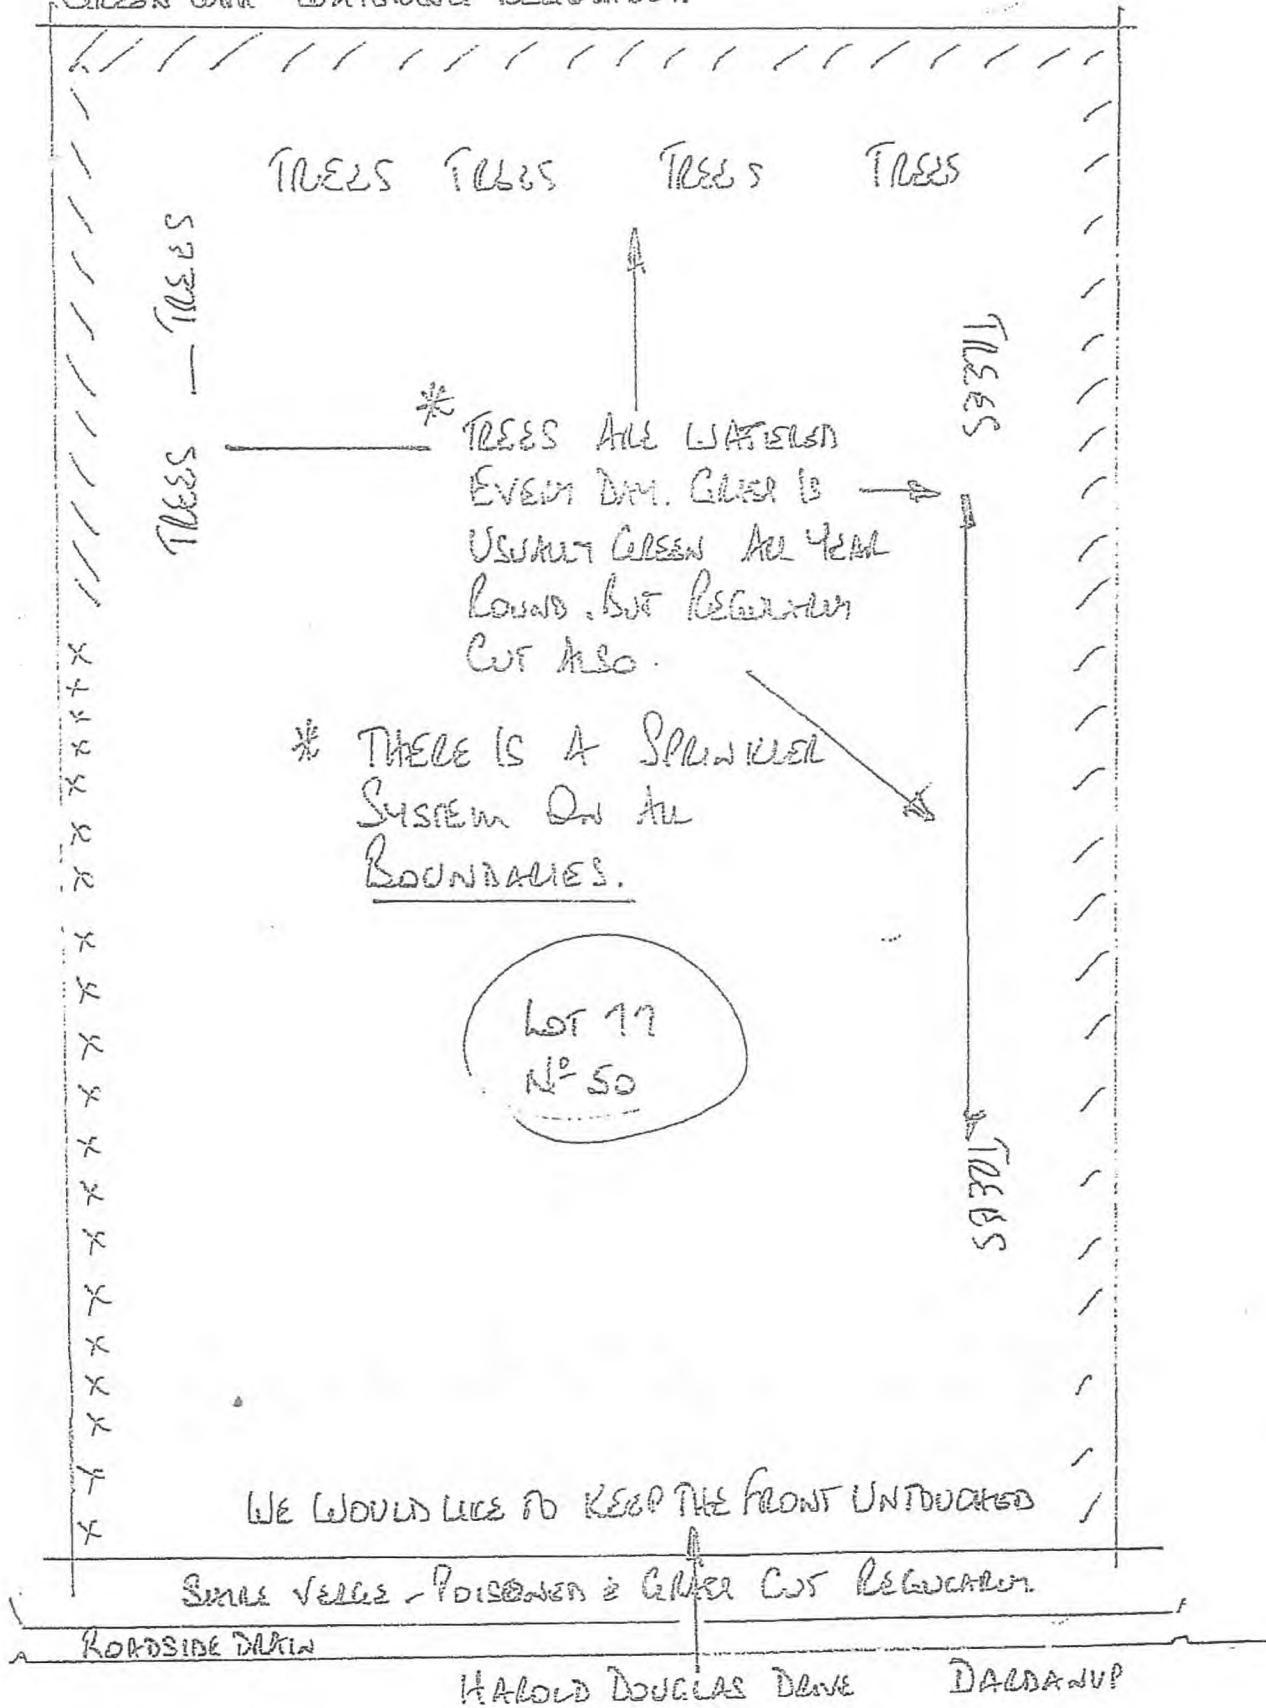 TREES TREES TREES TREES
TREES — TREES
TREES
* TREES ARE WATERED
EVERY DAY. GRASS IS
USUALLY GREEN ALL YEAR
ROUND. BUT REGULARLY
CUT ALSO.
* THERE IS A SPRINKLER
SYSTEM ON ALL
BOUNDARIES.
LOT 11
Nº 50
TREES
WE WOULD LIKE TO KEEP THE FRONT UNTOUCHED
SHIRE VERGE - POISONED & GRASS CUT REGULARLY
ROADSIDE DRAIN
HAROLD DOUGLAS DRIVE DARDANUP